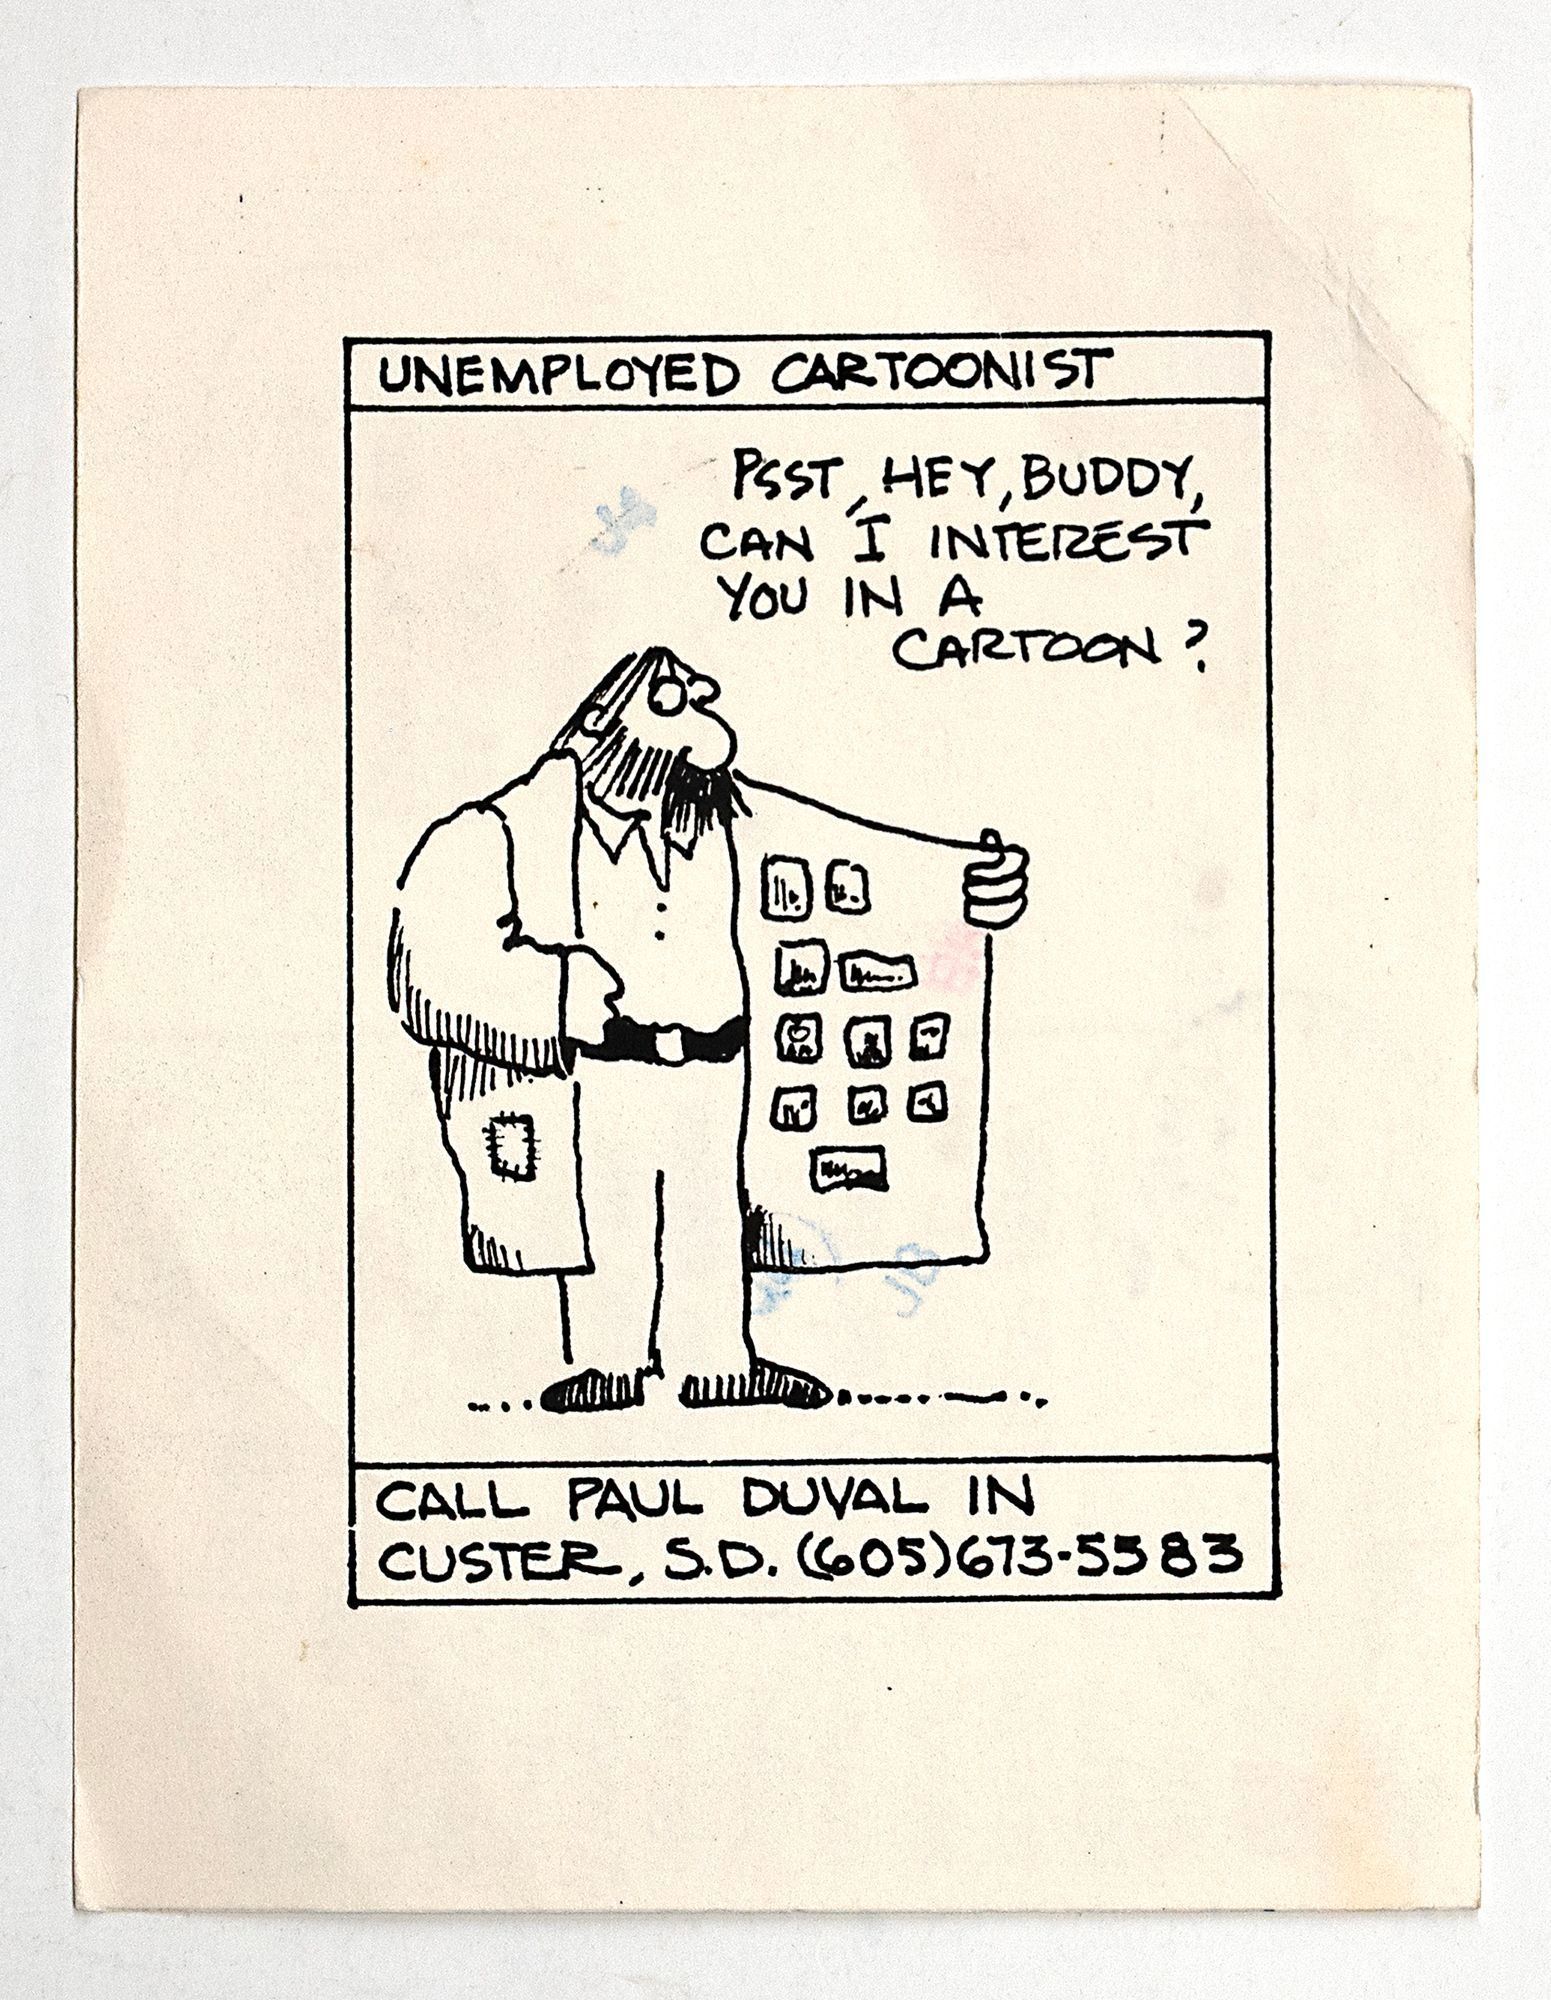 UNEMPLOYED CARTOONIST
PSST, HEY, BUDDY,
CAN I INTEREST
YOU IN A
CARTOON?
CALL PAUL DUVAL IN
CUSTER, S.D. (605)673-5583